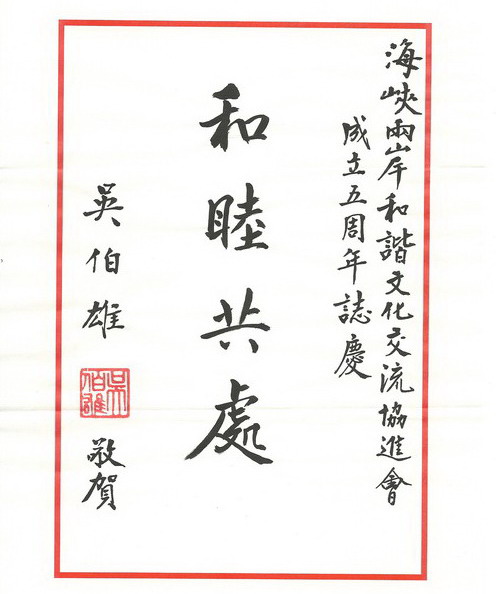 海峽兩岸和諧文化交流協進會
成立五周年誌慶
和睦共處
吳伯雄
吳伯雄
敬賀